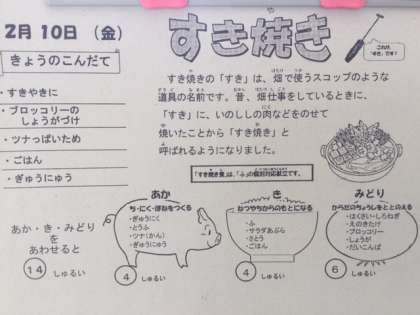 2月 10日 (金)
きょうのこんだて
・すきやきに
・ブロッコリーの
しょうがづけ
・ツナっぱいため
・ごはん
・ぎゅうにゅう
すき焼き
これが、
「すき」です!
すき焼きの「すき」は、畑で使うスコップのような
道具の名前です。昔、畑仕事をしているときに、
「すき」に、いのししの肉などをのせて
焼いたことから「すき焼き」と
呼ばれるようになりました。
「すき焼き煮」は、「ふ」の個別対応献立です。
あか・き・みどり
を
あわせると
14 しゅるい
あか
ち・にく・ほねをつくる
・ぎゅうにく
・とうふ
・ツナ(かん)
・ぎゅうにゅう
4 しゅるい
き
ねつやちからのもとになる
・ふ
・サラダあぶら
・さとう
・ごはん
4 しゅるい
みどり
からだのちょうしをととのえる
・はくさい・しろねぎ
・えのきたけ
・ブロッコリー
・しょうが
・だいこんば
6 しゅるい